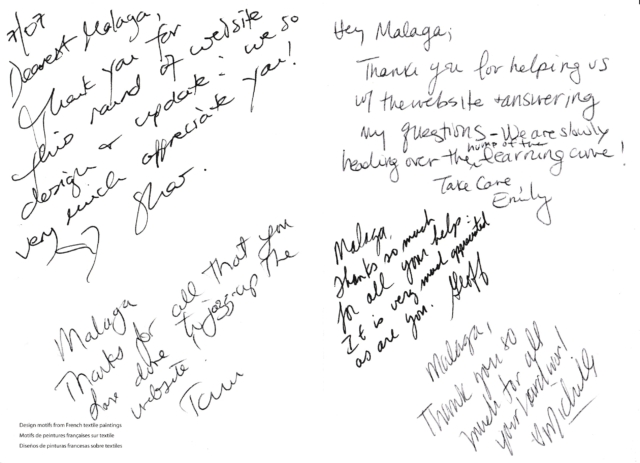 7/07
Dearest Malaga,
Thank you for
this round of website
design + update: we so
very much appreciate you!
Shar.
Malaga
Thanks for all that you
have done jazz-up the
website!
Hey Malaga;
Thank you for helping us
w/ the website + answering
my questions - We are slowly
heading over the hump of the learning curve!
Take Care
Emily
Malaga,
Thanks so much
for all your help:
It is very much appreciated
as are you. Geoff
Malaga,
Thank you so
much for all
your hard work!
Michelle
Design motifs from French textile paintings
Motifs de peintures françaises sur textile
Diseños de pinturas francesas sobre textiles